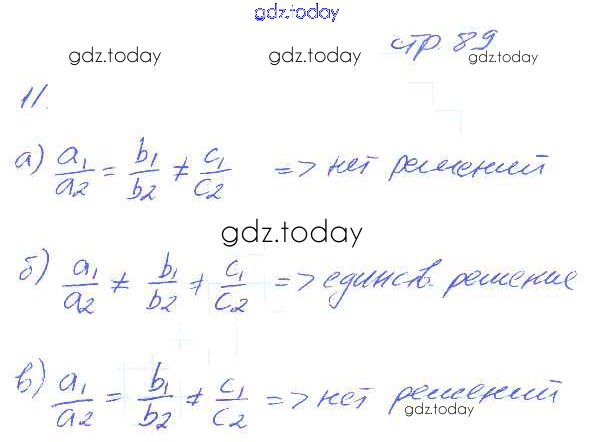 gdz.today
gdz.today стр. 89 gdz.today
11.
а) a₁/a₂ = b₁/b₂ ≠ c₁/c₂ => нет решений
gdz.today
б) a₁/a₂ ≠ b₁/b₂ ≠ c₁/c₂ => единств. решение
в) a₁/a₂ = b₁/b₂ ≠ c₁/c₂ => нет решений
gdz.today gdz.today